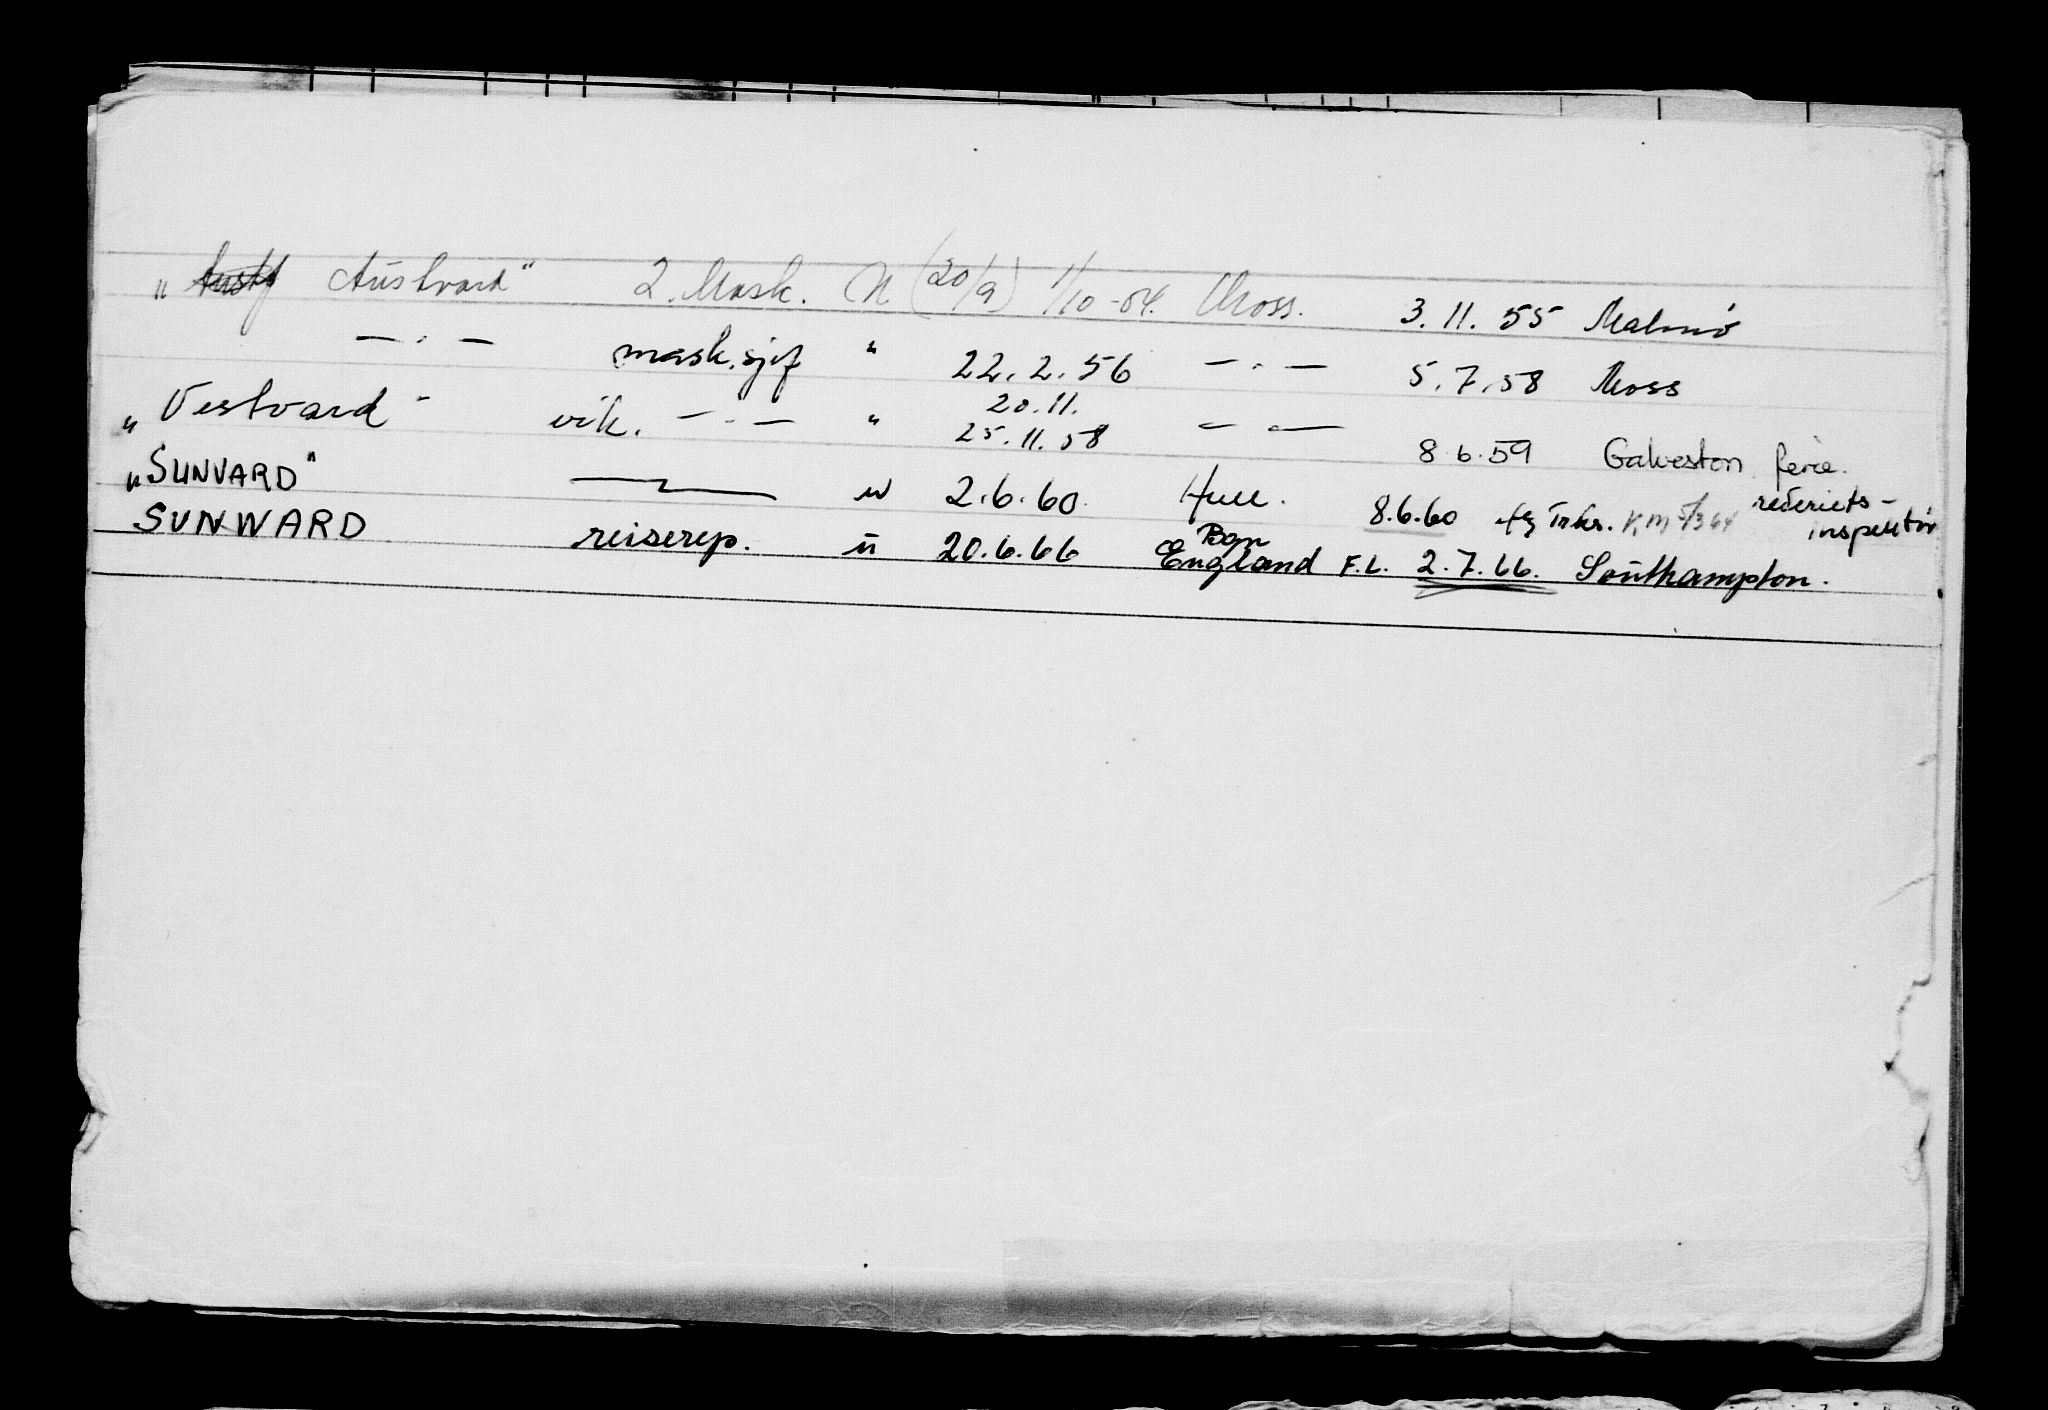 " Austvard" 2. Mask. N (20/9) 1/10-54. Moss. 3.11.55 Malmö
—"— mask.sjef " 22.2.56 —"— 5.7.58 Moss
"Vestvard" vik. —"— " 20.11. 25.11.58 —"— 8.6.59 Galveston ferie.
"SUNVARD" —"— " 2.6.60 Hull. 8.6.60 rederiets-inspektør
SUNWARD reiserep. " 20.6.66 Bgn England F.L. 2.7.66. Southampton.